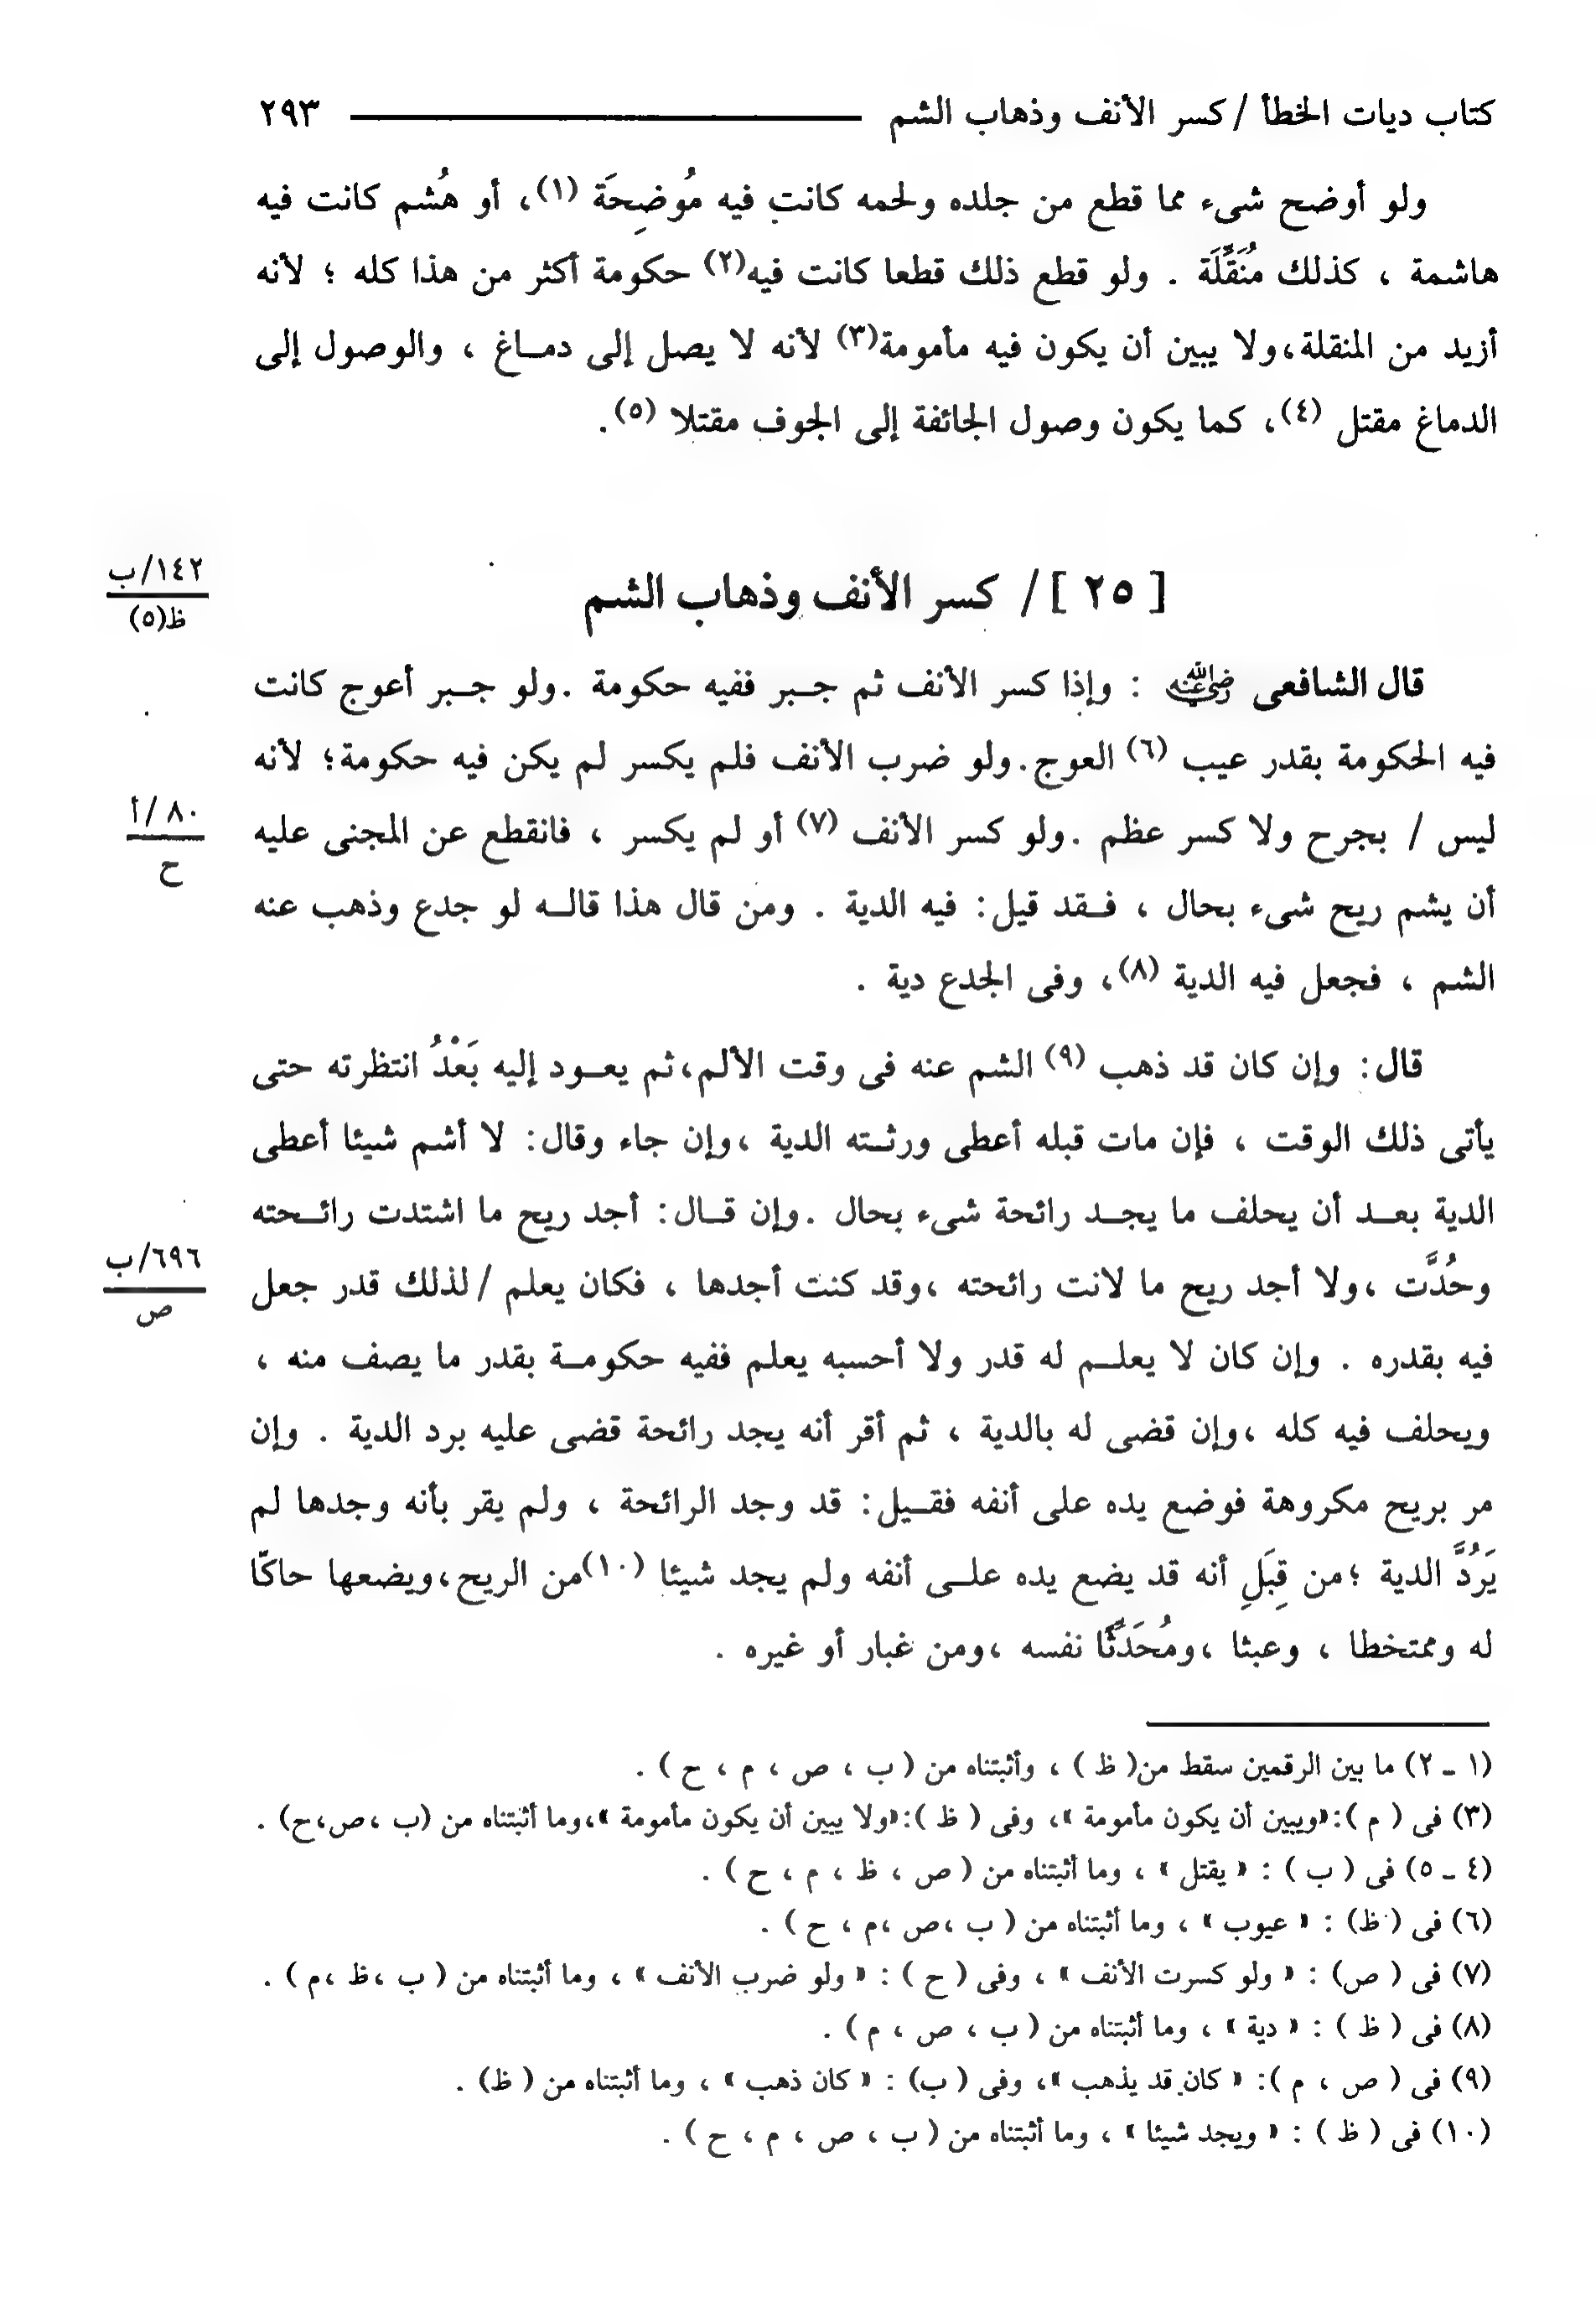 كتاب ديات الخطأ / كسر الأنف وذهاب الشم ــــــــــ ٢٩٣
ولو أوضح شىء مما قطع من جلده ولحمه كانت فيه مُوضِحَة (١)، أو هُشم كانت فيه
هاشمة ، كذلك مُنَقِّلَة . ولو قطع ذلك قطعا كانت فيه(٢) حكومة أكثر من هذا كله ؛ لأنه
أزيد من المنقلة،ولا يبين أن يكون فيه مأمومة(٣) لأنه لا يصل إلى دمـاغ ، والوصول إلى
الدماغ مقتل (٤)، كما يكون وصول الجائفة إلى الجوف مقتلا (٥).
١٤٢/ب
ظ(٥)
[ ٢٥ ] / كسر الأنف وذهاب الشم
قال الشافعى رضي الله عنه : وإذا كسر الأنف ثم جـبر ففيه حكومة .ولو جـبر أعوج كانت
فيه الحكومة بقدر عيب (٦) العوج.ولو ضرب الأنف فلم يكسر لم يكن فيه حكومة؛ لأنه
٨٠/أ
ح
ليس / بجرح ولا كسر عظم .ولو كسر الأنف (٧) أو لم يكسر ، فانقطع عن المجنى عليه
أن يشم ريح شىء بحال ، فـقد قيل: فيه الدية . ومن قال هذا قالـه لو جدع وذهب عنه
الشم ، فجعل فيه الدية (٨)، وفى الجدع دية .
قال: وإن كان قد ذهب (٩) الشم عنه فى وقت الألم،ثم يعـود إليه بَعْدُ انتظرته حتى
يأتى ذلك الوقت ، فإن مات قبله أعطى ورثـته الدية ،وإن جاء وقال: لا أشم شيئا أعطى
الدية بعـد أن يحلف ما يجـد رائحة شىء بحال .وإن قـال: أجد ريح ما اشتدت رائـحته
٦٩٦/ب
ص
وحُدَّت ،ولا أجد ريح ما لانت رائحته ،وقد كنت أجدها ، فكان يعلم /لذلك قدر جعل
فيه بقدره . وإن كان لا يعلـم له قدر ولا أحسبه يعلم ففيه حكومـة بقدر ما يصف منه ،
ويحلف فيه كله ،وإن قضى له بالدية ، ثم أقر أنه يجد رائحة قضى عليه برد الدية . وإن
مر بريح مكروهة فوضع يده على أنفه فقـيل: قد وجد الرائحة ، ولم يقر بأنه وجدها لم
يَرُدَّ الدية ؛من قِبَلِ أنه قد يضع يده علـى أنفه ولم يجد شيئا (١٠)من الريح،ويضعها حاكّا
له وممتخطا ، وعبثا ،ومُحَدِّثًا نفسه ،ومن غبار أو غيره .
(١ ـ ٢) ما بين الرقمين سقط من( ظ ) ، وأثبتناه من ( ب ، ص ، م ، ح ) .
(٣) فى ( م ):«ويبين أن يكون مأمومة »، وفى ( ظ ):«ولا يبين أن يكون مأمومة »،وما أثبتناه من (ب ،ص،ح) .
(٤ ـ ٥) فى ( ب ) : « يقتل » ، وما أثبتناه من ( ص ، ظ ، م ، ح ) .
(٦) فى ( ظ) : « عيوب » ، وما أثبتناه من ( ب ،ص ،م ، ح ) .
(٧) فى ( ص) : « ولو كسرت الأنف » ، وفى ( ح ) : « ولو ضرب الأنف » ، وما أثبتناه من ( ب ،ظ ،م ) .
(٨) فى ( ظ ) : « دية » ، وما أثبتناه من ( ب ، ص ، م ) .
(٩) فى ( ص ، م ): « كان قد يذهب »، وفى ( ب) : « كان ذهب » ، وما أثبتناه من ( ظ) .
(١٠) فى ( ظ ) : « ويجد شيئا » ، وما أثبتناه من ( ب ، ص ، م ، ح ) .